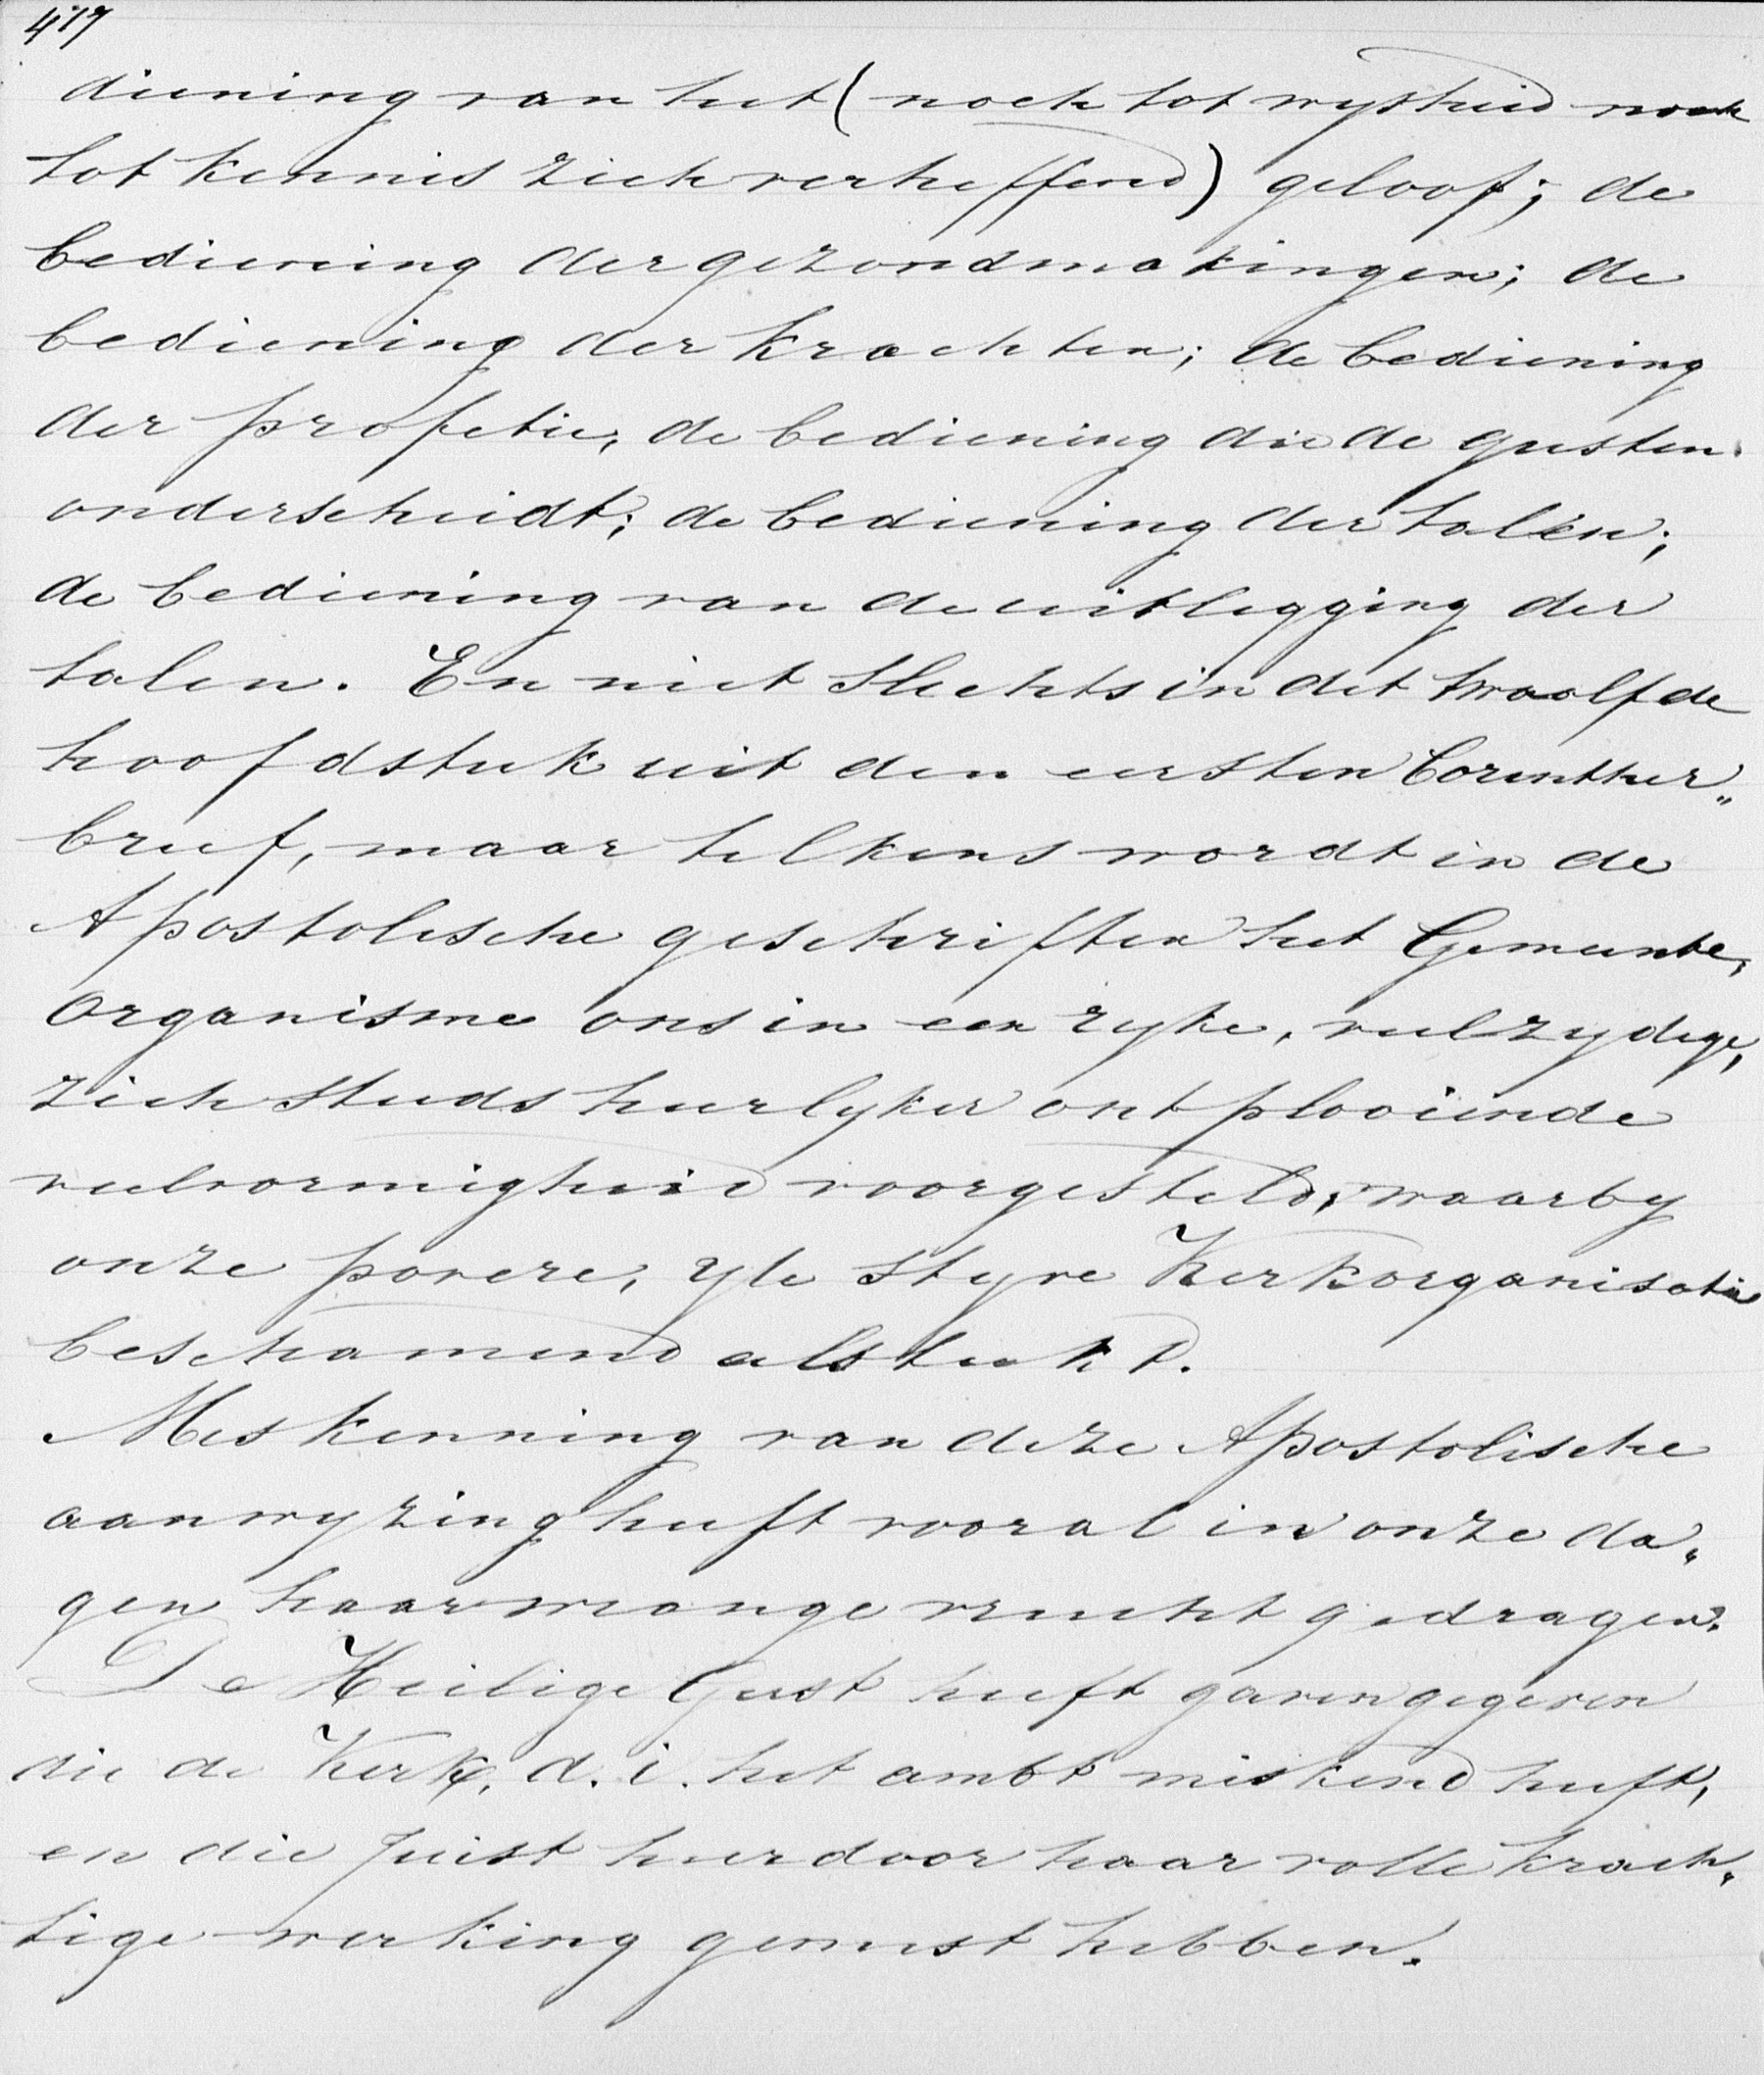 417
diening van het (noch tot wysheid noch
tot kennis zich verheffend) geloof; de
bediening der gezondmakingen; de
bediening der krachten; de bediening
der profetie, de bediening die de geesten
onderscheidt; de bediening der talen;
de bediening van de uitlegging der
talen. En niet slechts in dit twaalfde
hoofdstuk uit den eersten Corinther„
brief, maar telkens wordt in de
Apostolische geschriften het Gemeente„
organisme ons in een ryke, veelzydige,
zich steeds heerlyker ontplooiende
veelvormigheid voorgesteld, waarby
onze povere, yle styve Kerkorganisatie
beschamend afsteekt.
Miskenning van deze Apostolische
aanwyzing heeft vooral in onze da„
gen haar wrange vrucht gedragen.
De Heilige Geest heeft gaven gegeven
die de Kerk, d. i. het ambt miskend heeft,
en die juist hierdoor haar volle krach„
tige werking gemist hebben.